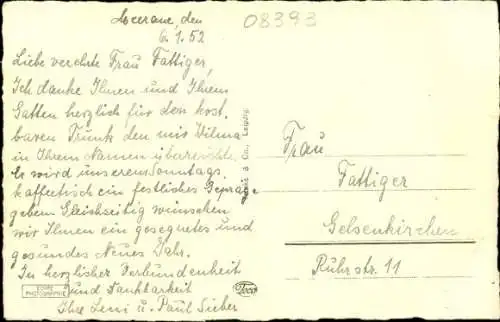 Meerane, den
6.1.52
08393
Liebe verehrte Frau Fattiger,
Ich danke Ihnen und Ihrem
Gatten herzlich für den kost-
baren Trunk den mir Wilma
in Ihrem Namen überreichte.
Er wird unserem Sonntags-
kaffeetisch ein festliches Gepräge
geben. Gleichzeitig wünschen
wir Ihnen ein gesegnetes und
gesundes Neues Jahr.
In herzlicher Verbundenheit
und Dankbarkeit
Ihre Leni u. Paul Sieber
& Co., Leipzig
Frau
Fattiger
Gelsenkirchen
Ruhrstr. 11
ECHTE
PHOTOGRAPHIE